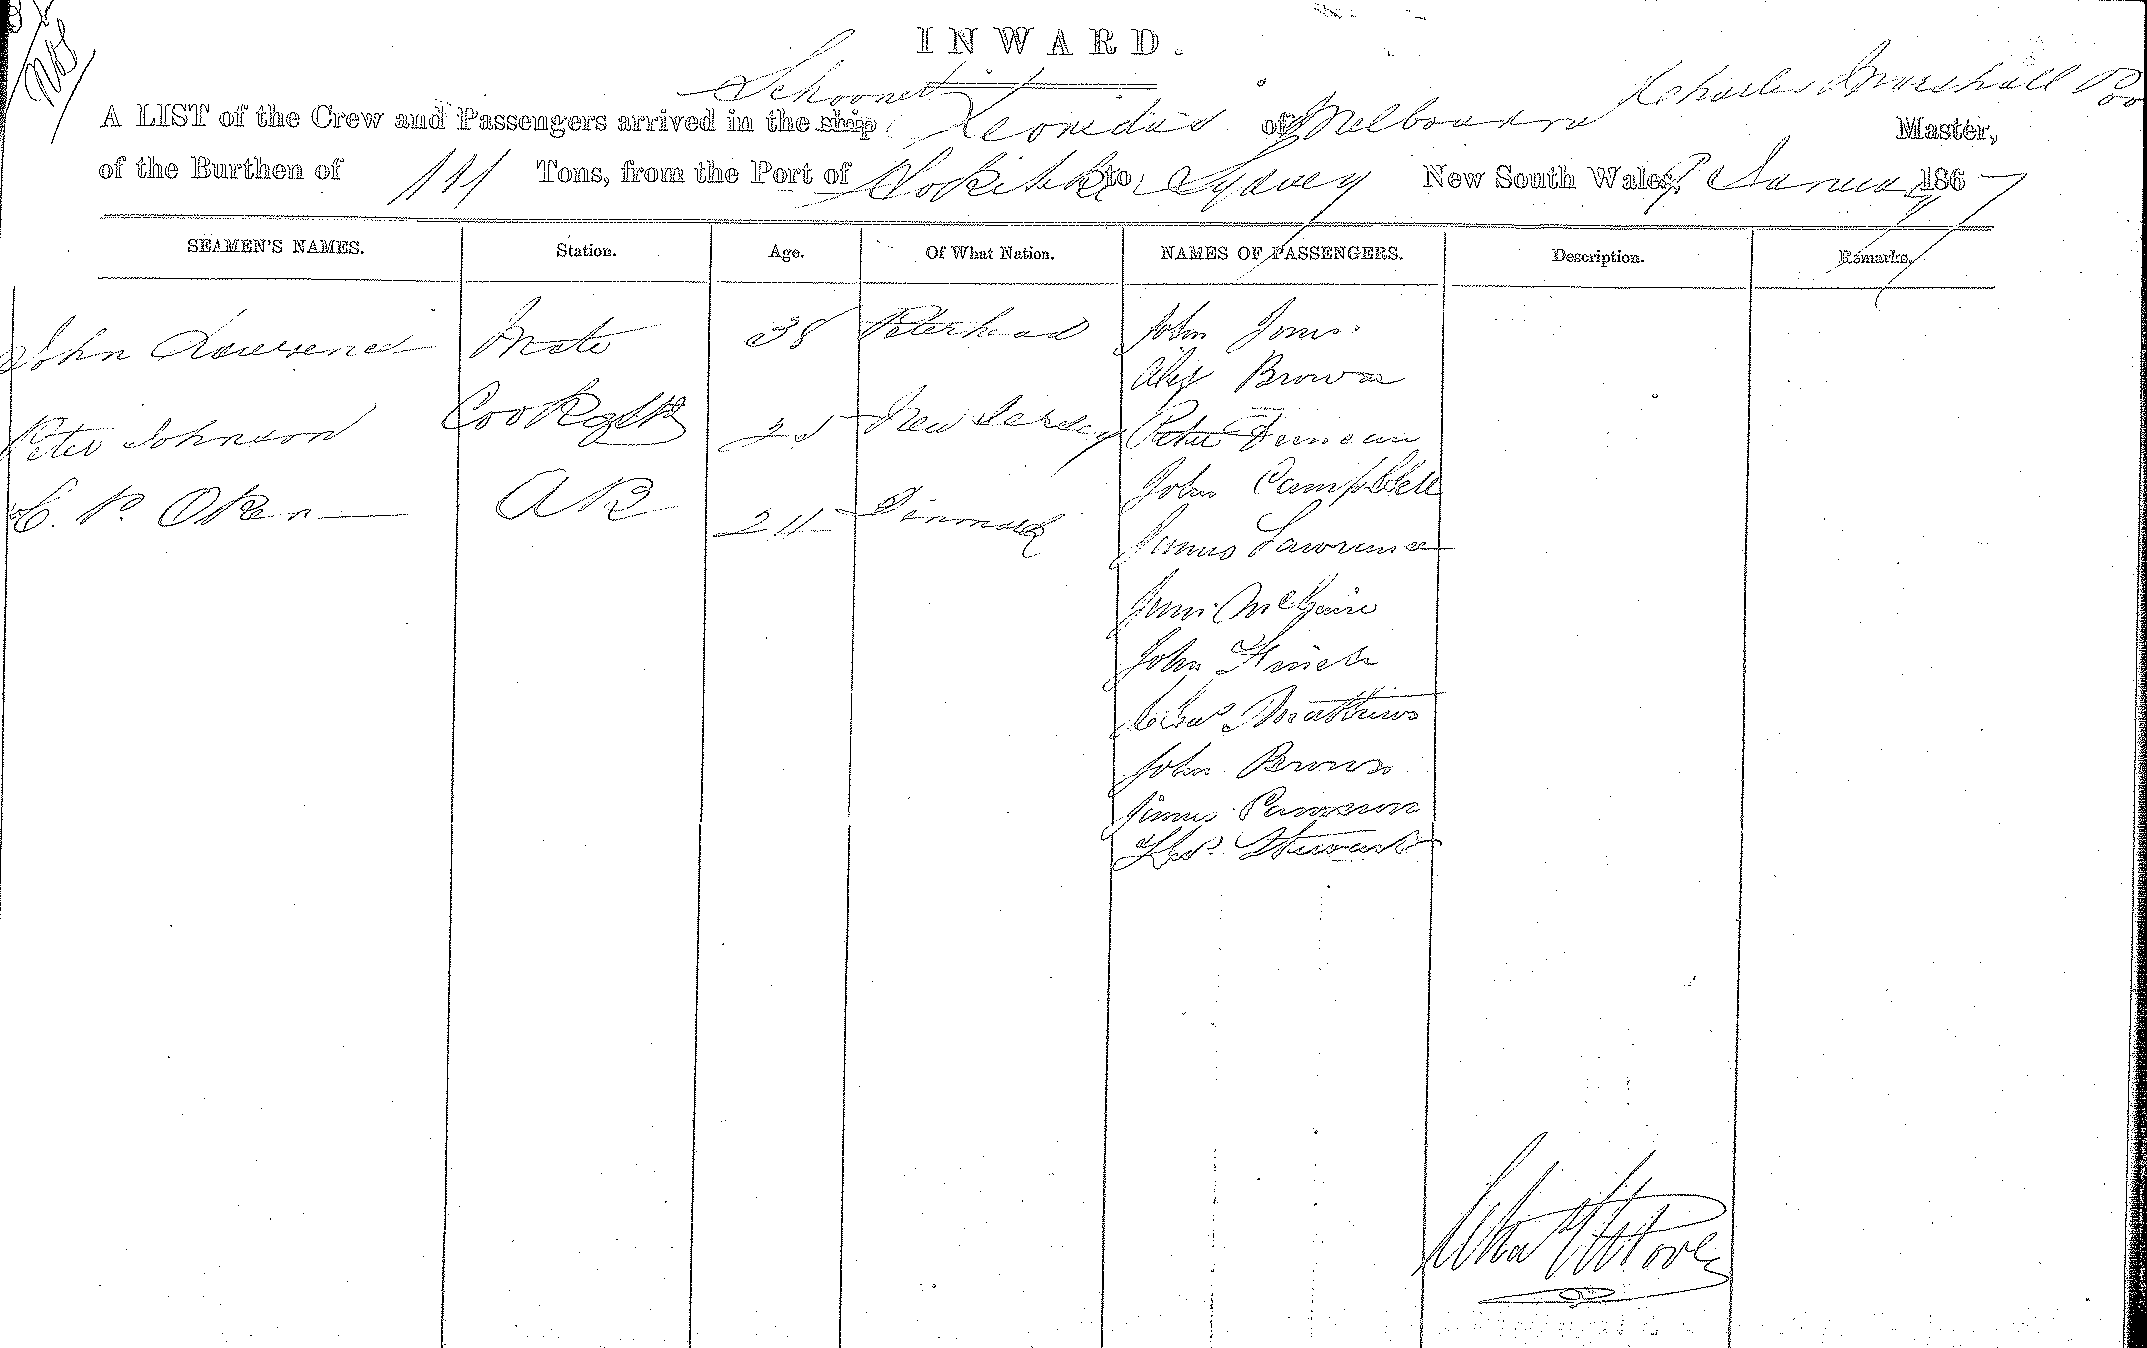 INWARD.
Schooner Charles Marshall
A LIST of the Crew and Passengers arrived in the ship Leonidas of Melbourne Master,
of the Burthen of 111 Tons, from the Port of Hokitika to Sydney New South Wales January 1867
SEAMEN'S NAMES. Station. Age. Of What Nation. NAMES OF PASSENGERS. Description. Remarks.
John Lawrence Mate 38 Peterhead John Jones
Alex Brown
Peter Johnson Cook & AB 25 New Jersey Peter Duncan
John Campbell
C. P. Oken AB 24 Denmark James Lawrence
James McGuire
John Finch
Chas Mathews
John Brown
James Cameron
Thos. Stewart